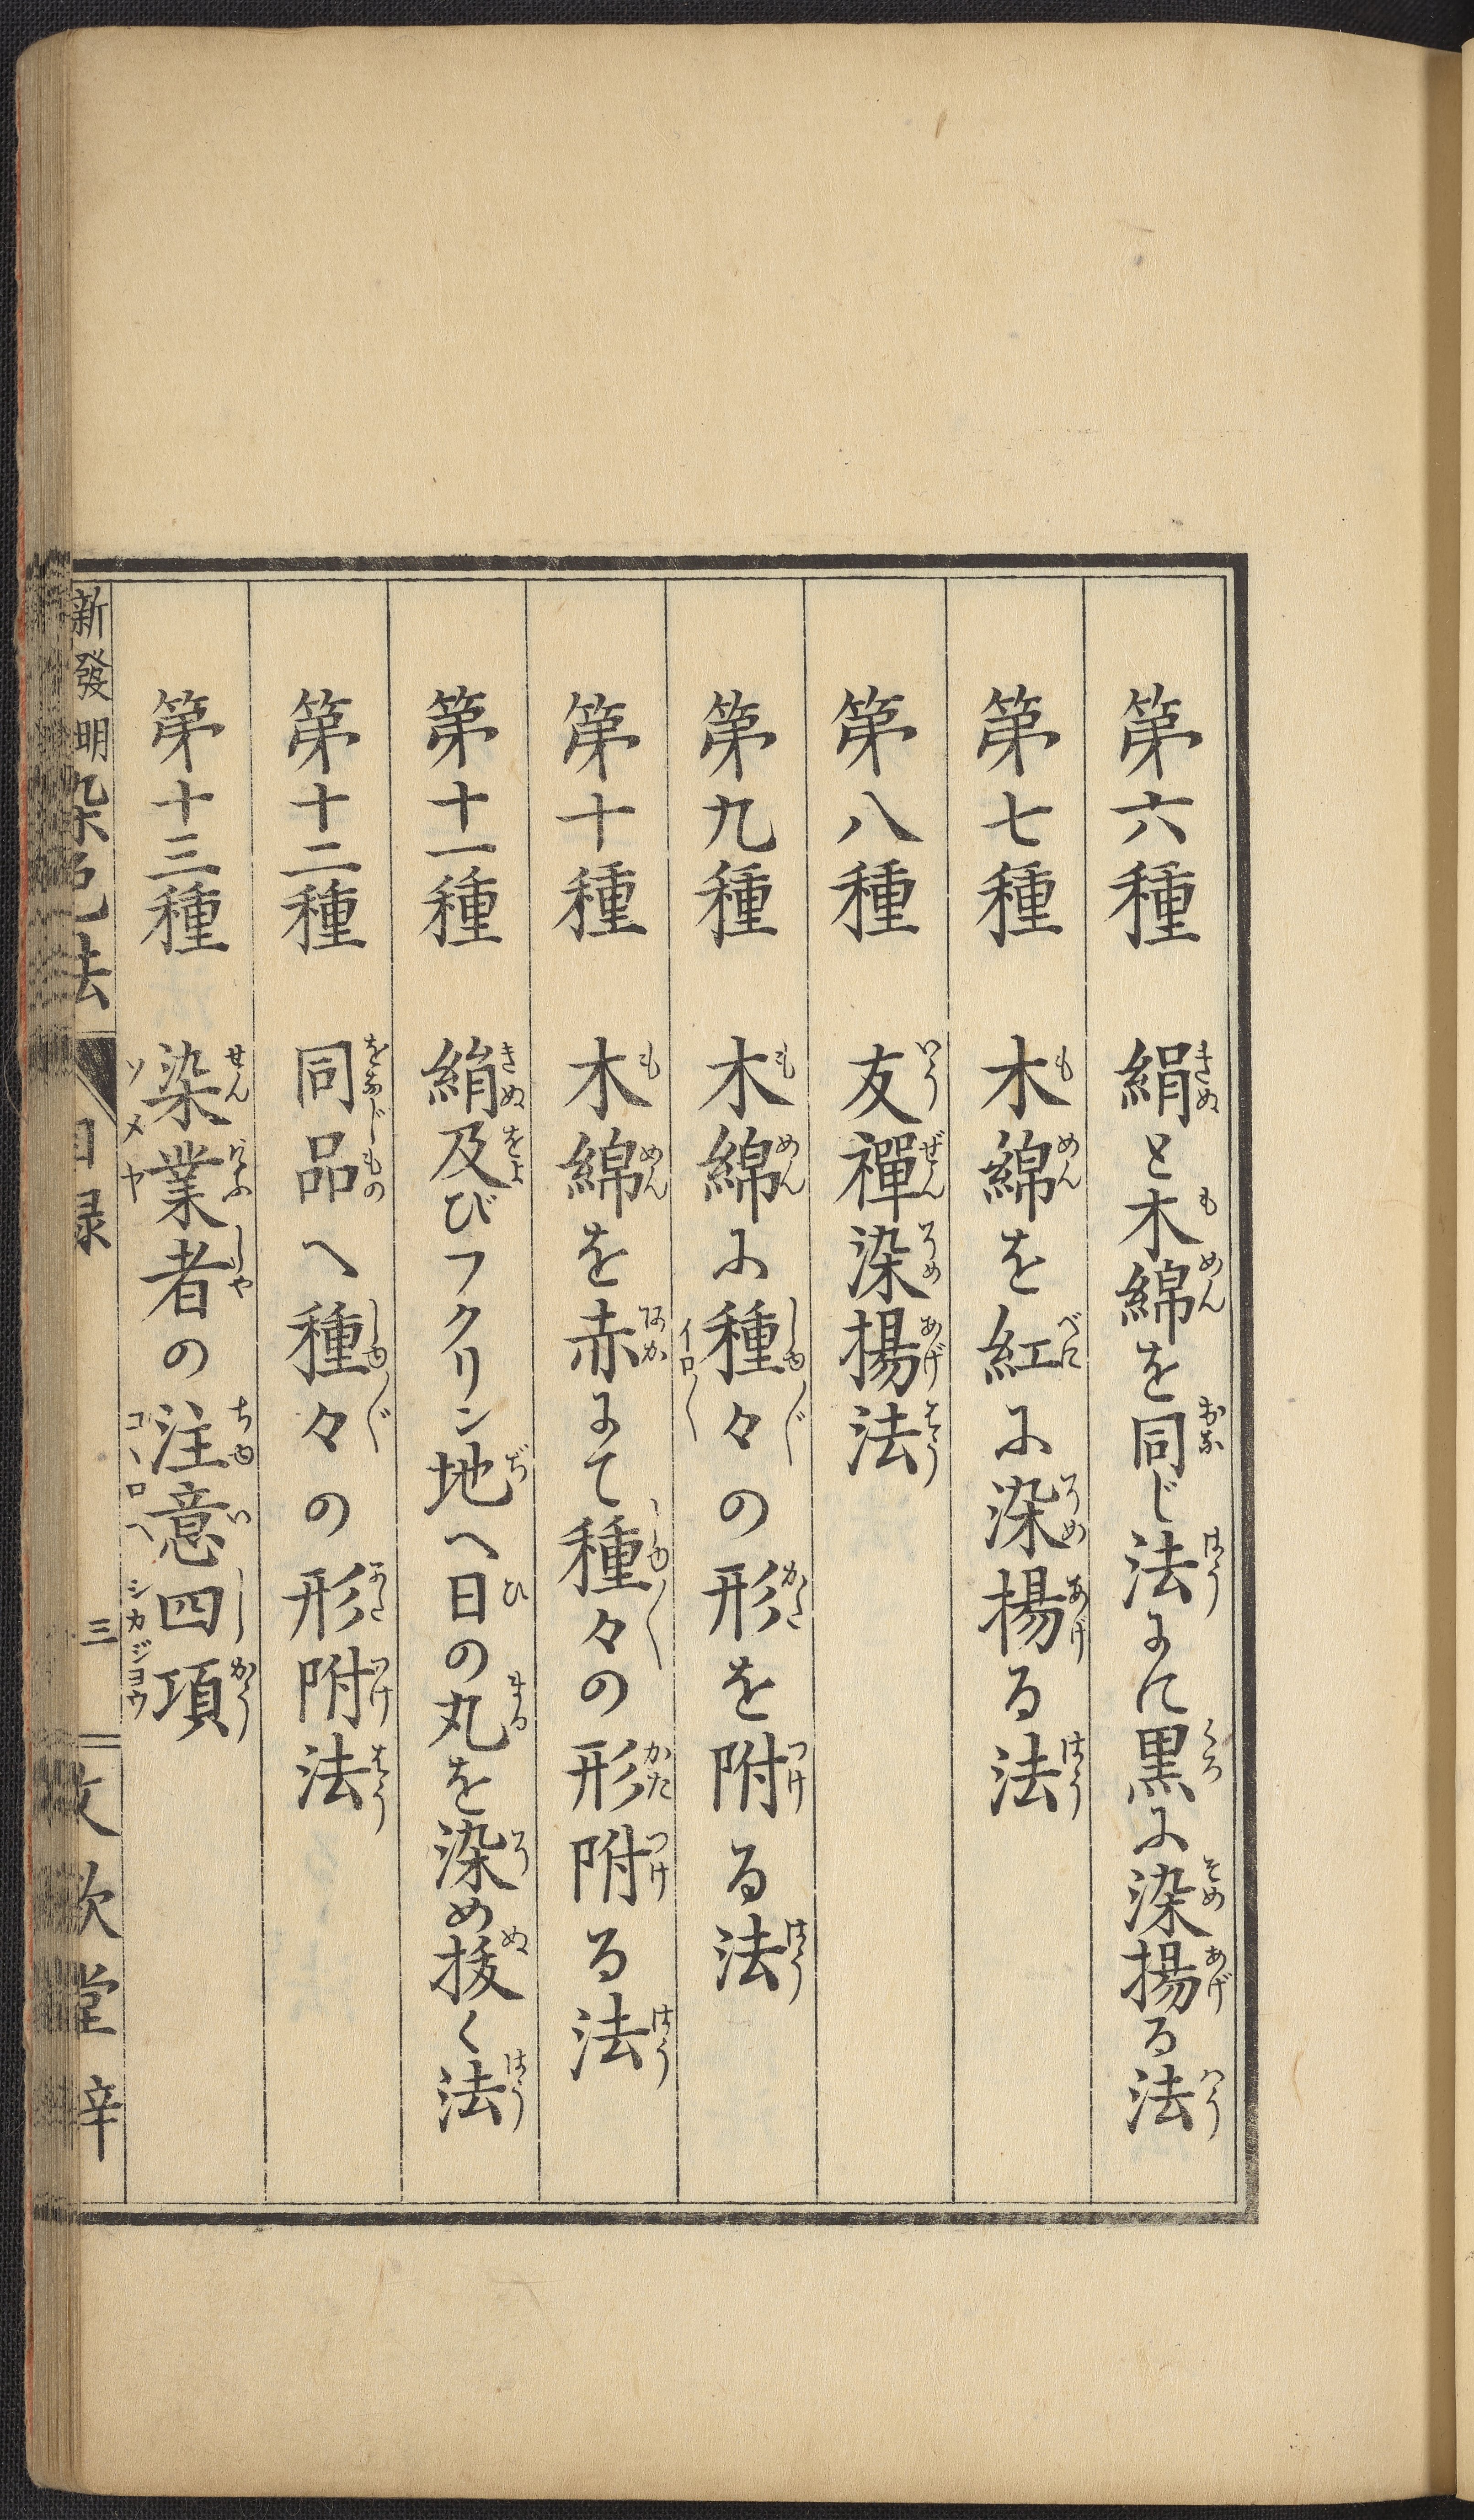 第六種 絹と木綿を同じ法にて黒に染揚る法
第七種 木綿を紅に染揚る法
第八種 友禪染揚法
第九種 木綿に種々の形を附る法
第十種 木綿を赤にて種々の形附る法
第十一種 絹及びフクリン地へ日の丸を染め抜く法
第十二種 同品へ種々の形附法
第十三種 染業者の注意四項
新發明染色法 目録 三